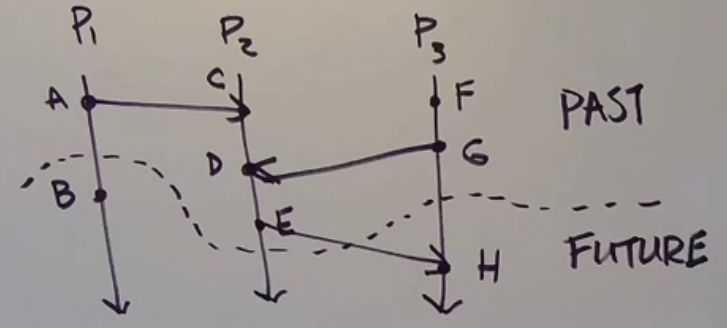 P1 P2 P3
A C F PAST
D G
B E
H FUTURE